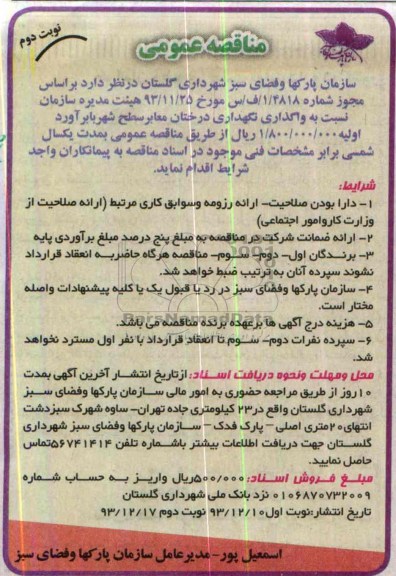 نوبت دوم
مناقصه عمومی
سازمان پارکها وفضای سبز شهرداری گلستان درنظر دارد براساس
مجوز شماره ۱/۴۸۱۸/ف/س مورخ ۹۳/۱۱/۲۵ هیئت مدیره سازمان
نسبت به واگذاری نگهداری درختان معابرسطح شهربابرآورد
اولیه ۱/۸۰۰/۰۰۰/۰۰۰ ریال از طریق مناقصه عمومی بمدت یکسال
شمسی برابر مشخصات فنی موجود در اسناد مناقصه به پیمانکاران واجد
شرایط اقدام نماید.
شرایط:
۱- دارا بودن صلاحیت- ارائه رزومه وسوابق کاری مرتبط (ارائه صلاحیت از
وزارت کاروامور اجتماعی)
۲- ارائه ضمانت شرکت در مناقصه به مبلغ پنج درصد مبلغ برآوردی پایه
۳- برندگان اول- دوم- سوم- مناقصه هرگاه حاضربه انعقاد قرارداد
نشوند سپرده آنان به ترتیب ضبط خواهد شد.
۴- سازمان پارکها وفضای سبز در رد یا قبول یک یا کلیه پیشنهادات واصله
مختار است.
۵- هزینه درج آگهی ها برعهده برنده مناقصه می باشد.
۶- سپرده نفرات دوم- سوم تا انعقاد قرارداد با نفر اول مسترد نخواهد
شد.
محل ومهلت ونحوه دریافت اسناد: ازتاریخ انتشار آخرین آگهی بمدت
۱۰روز از طریق مراجعه حضوری به امور مالی سازمان پارکها وفضای سبز
شهرداری گلستان واقع در۲۳ کیلومتری جاده تهران- ساوه شهرک سبزدشت
انتهای۲۰متری اصلی – پارک فدک – سازمان پارکها وفضای سبز شهرداری
گلستان جهت دریافت اطلاعات بیشتر باشماره تلفن ۵۶۷۴۱۴۱۴تماس
حاصل نمایید.
مبلغ فروش اسناد: ۵۰۰/۰۰۰ریال واریز به حساب شماره
۰۱۰۶۸۷۰۷۳۲۰۰۹ نزد بانک ملی شهرداری گلستان
تاریخ انتشار:نوبت اول۹۳/۱۲/۱۰ نوبت دوم ۹۳/۱۲/۱۷
اسمعیل پور- مدیرعامل سازمان پارکها وفضای سبز